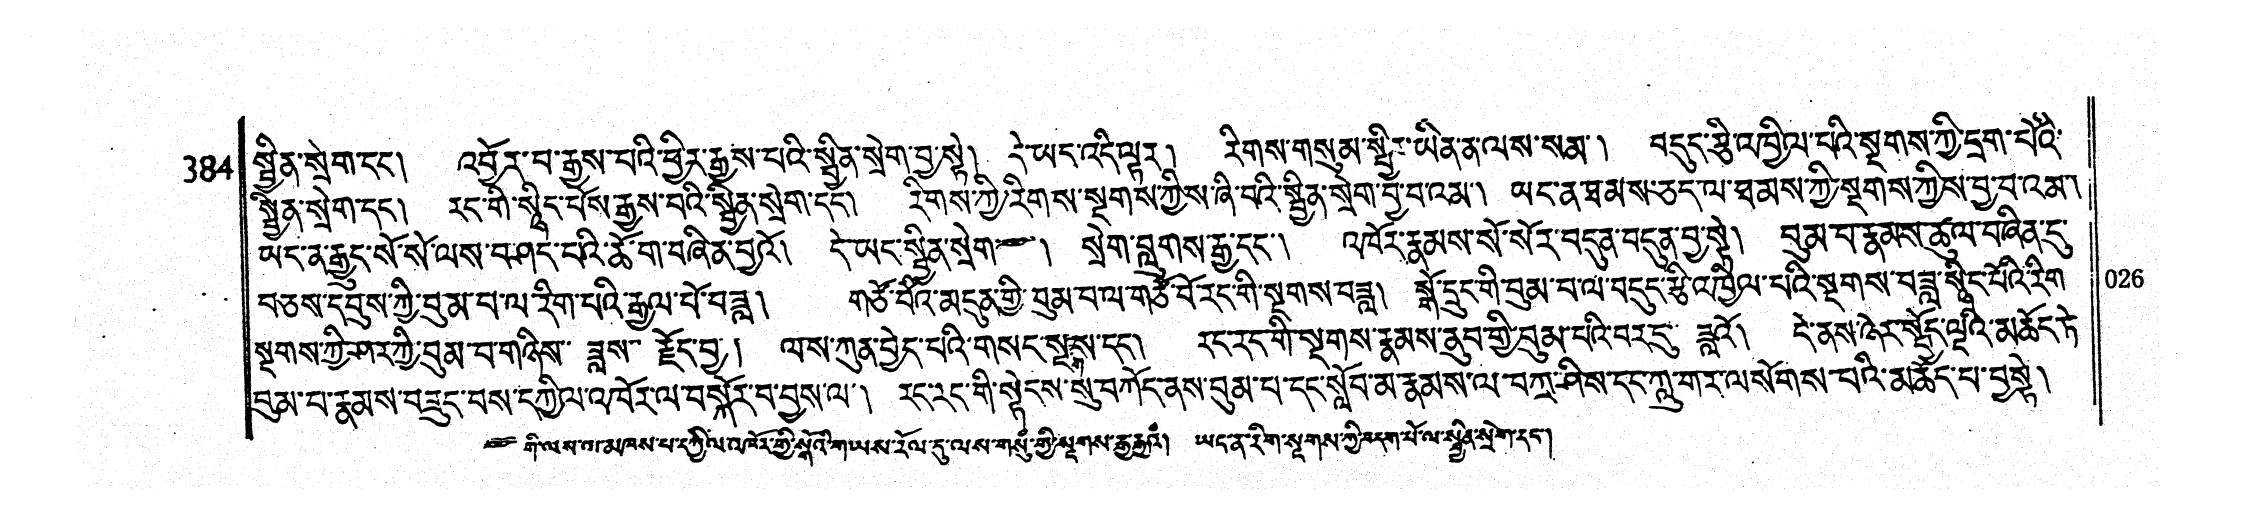 384
སྦྱིན་སྲེག་དང། འབྱོར་བ་རྒྱས་པའི་ཕྱིར་རྒྱས་པའི་སྦྱིན་སྲེག་བྱ་སྟེ། དེ་ཡང་འདི་ལྟར། རིགས་གསུམ་སྤྱིར་ཡིན་ན་ལས་སམ། བདུད་རྩི་འཁྱིལ་པའི་སྔགས་ཀྱི་དྲག་པོའི་
སྦྱིན་སྲེག་དང། རང་གི་སྙིང་པོས་རྒྱས་པའི་སྦྱིན་སྲེག་དང། རིགས་ཀྱི་རིགས་སྔགས་ཀྱིས་ཞི་བའི་སྦྱིན་སྲེག་བྱ་བ་འམ། ཡང་ན་ཐམས་ཅད་ལ་ཐམས་ཀྱི་སྔགས་ཀྱིས་བྱ་བ་འམ།
ཡང་ན་རྒྱུད་སོ་སོ་ལས་བཤད་པའི་ཆོ་ག་བཞིན་བྱའོ། དེ་ཡང་སྦྱིན་སྲེག་ སྲེག་བླུགས་རྒྱ་དང་། འཁོར་རྣམས་སོ་སོར་བདུན་བདུན་བྱ་སྟེ། བུམ་པ་རྣམས་ཚུལ་བཞིན་དུ་
བཅས་དབུས་ཀྱི་བུམ་པ་ལ་རིག་པའི་རྒྱལ་པོ་བཟླ། གཙོ་བོའི་མདུན་གྱི་བུམ་པ་ལ་གཙོ་བོ་རང་གི་སྔགས་བཟླ། སྒོ་དྲུང་གི་བུམ་པ་ལ་བདུད་རྩི་འཁྱིལ་པའི་སྔགས་བཟླ་སྙིང་པོའི་རིག
སྔགས་ཀྱི་ཤར་ཀྱི་བུམ་པ་གཉིས་ ཟླས་ རྫོང་བྱ། ལས་ཀུན་བྱེད་པའི་གསང་སྔགས་དང། རང་རང་གི་སྔགས་རྣམས་ནུབ་ཀྱི་བུམ་པའི་བར་དུ་ ཟླའོ། དེ་ནས་ཉེར་སྤྱོད་ལྔའི་མཆོད་ཏེ
བུམ་པ་རྣམས་བཟུང་བས་དཀྱིལ་འཁོར་ལ་བསྐོར་བ་བྱས་ལ། རང་རང་གི་སྟེངས་སུ་བཀོད་ནས་བུམ་པ་དང་སློབ་མ་རྣམས་ལ་བཀྲ་ཤིས་དང་གླུ་གར་ལ་སོགས་པའི་མཆོད་པ་བྱ་སྟེ།
གི་ལས་ལ་མཁས་པ་དཀྱིལ་འཁོར་གྱི་སྒོའི་གཡས་རོལ་དུ་ལས་གསུམ་གྱི་སྔགས་རྒྱ་རྒྱའམ། ཡང་ན་རིག་སྔགས་ཀྱི་བདག་པོ་ལ་སྦྱིན་སྲེག་དང།
026